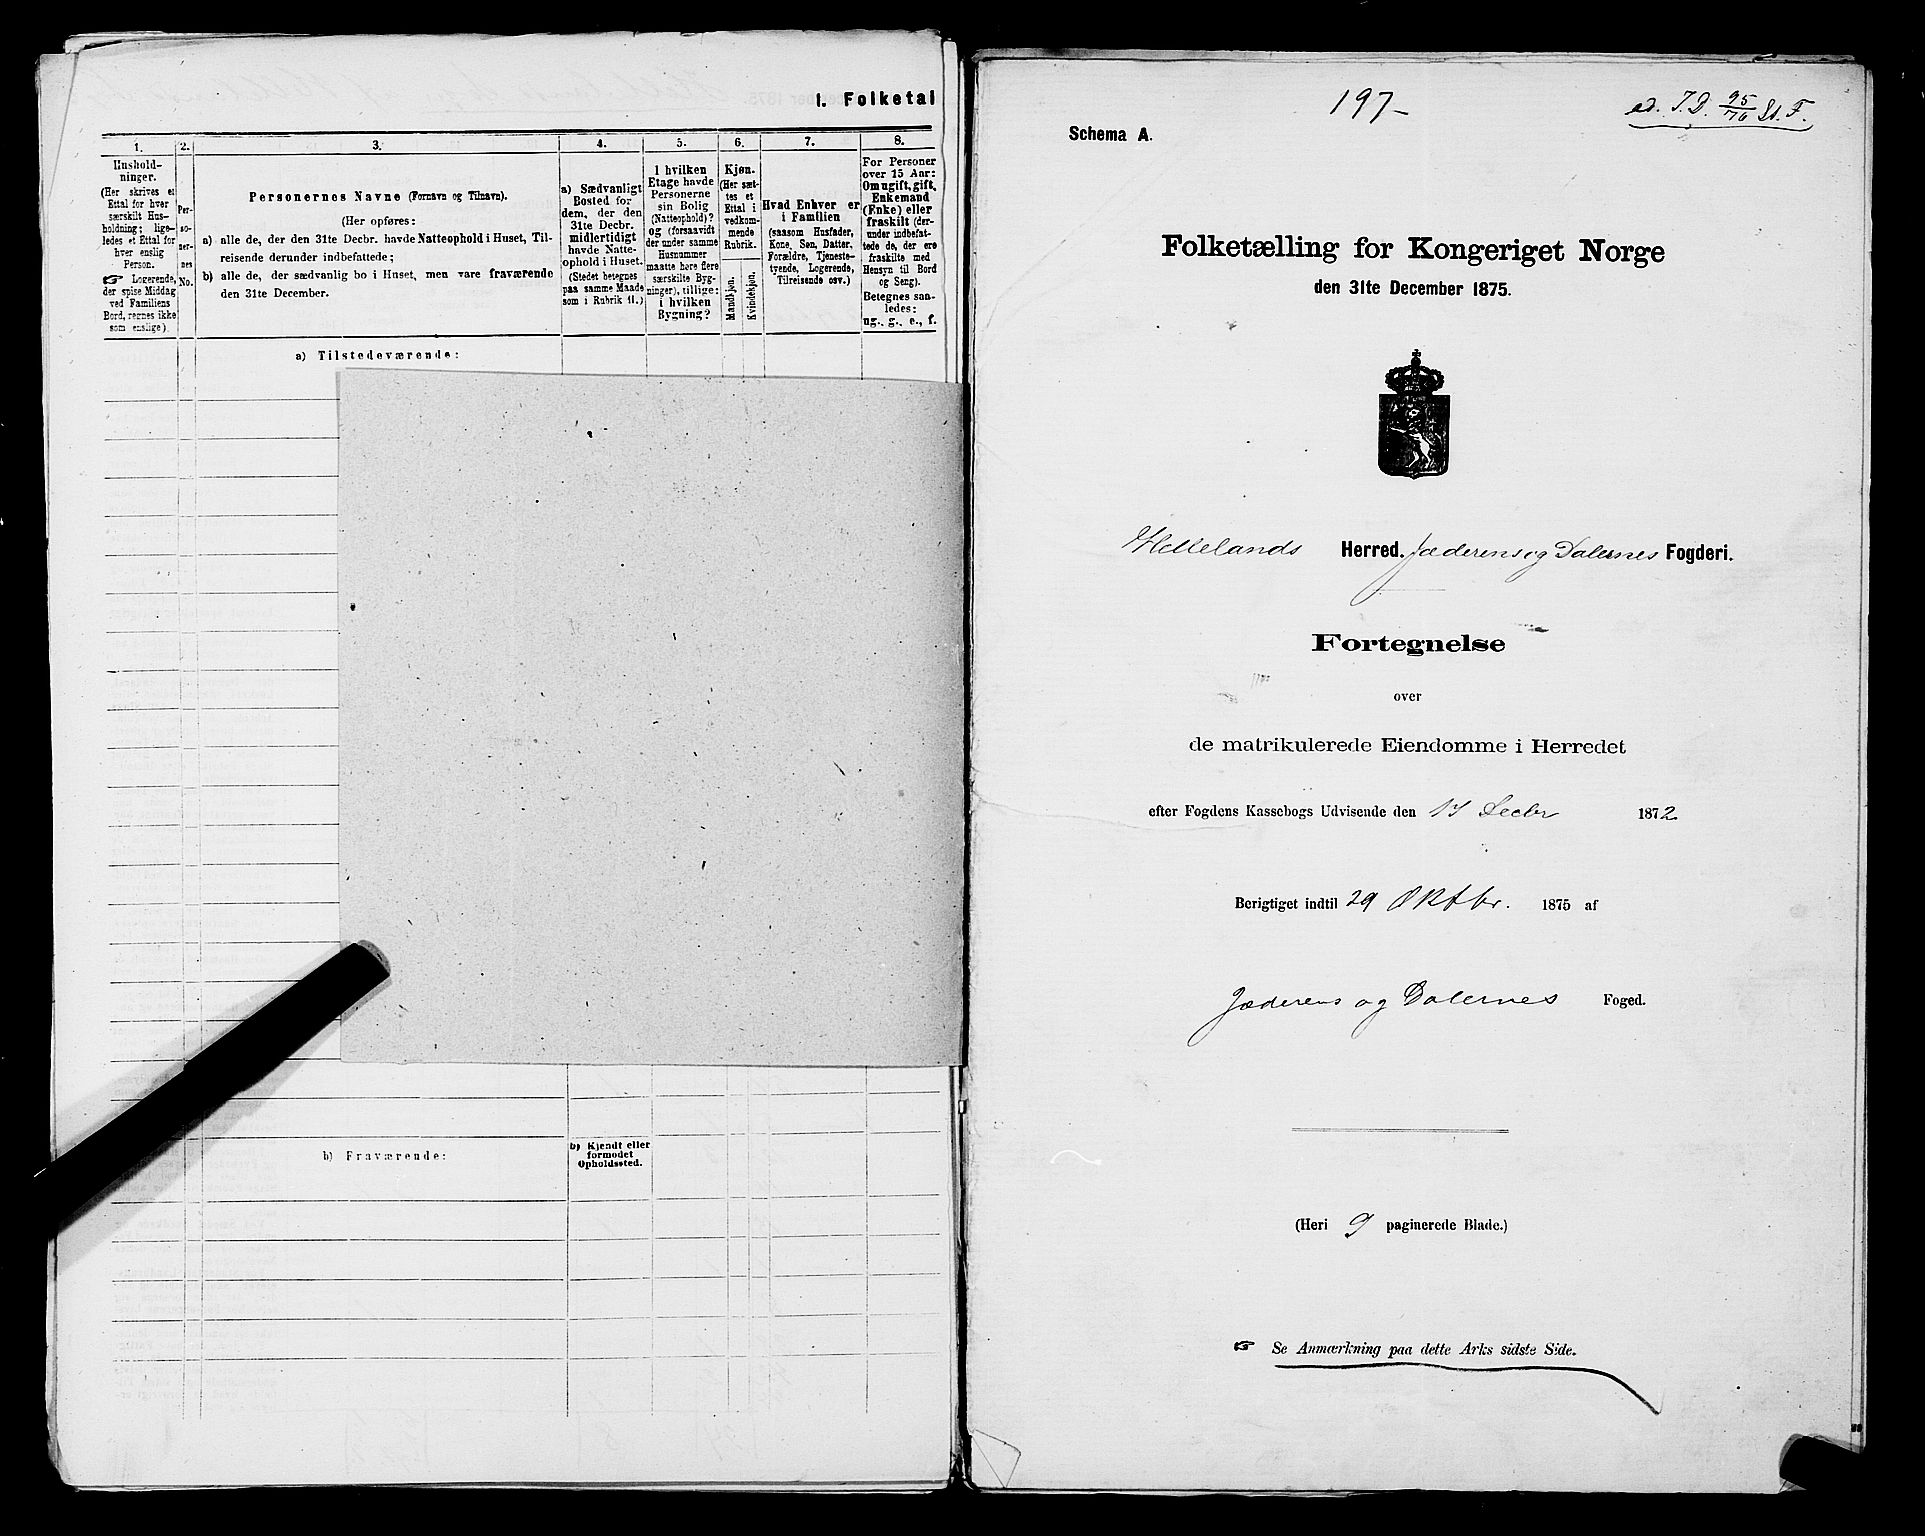 1. Folketal
1.
Hushold-
ninger.
(Her skrives et
Ettal for hver
særskilt Hus-
holdning; lige-
ledes et Ettal for
hver enslig
Person.
☞ Logerende,
der spise Middag
ved Familiens
Bord, regnes ikke
som enslige).
2.
Per-
so-
ner-
nes
No.
3.
Personernes Navne (Fornavn og Tilnavn).
(Her opføres:
a) alle de, der den 31te Decbr. havde Natteophold i Huset, Til-
reisende derunder indbefattede;
b) alle de, der sædvanlig bo i Huset, men vare fraværende
den 31te December.
4.
a) Sædvanligt
Bosted for
dem, der den
31te Decbr.
midlertidigt
havde Natte-
ophold i Huset.
(Stedet betegnes
paa samme Maade
som i Rubrik 11.)
5.
I hvilken
Etage havde
Personerne
sin Bolig
(Natteophold)?
og (forsaavidt
der under samme
Husnummer
maatte høre flere
særskilte Byg-
ninger), tillige:
i hvilken
Bygning?
6.
Kjøn.
(Her sæt-
tes et
Ettal i
vedkom-
mende
Rubrik.
Mandkjøn.
Kvindekjøn.
7.
Hvad Enhver er
i Familien
(saasom Husfader,
Kone, Søn, Datter,
Forældre, Tjeneste-
tyende, Logerende,
Tilreisende osv.)
8.
For Personer
over 15 Aar:
Om ugift, gift,
Enkemand
(Enke) eller
fraskilt (der-
under indbefat-
tede de, der ere
fraskilte med
Hensyn til Bord
og Seng).
Betegnes saa-
ledes:
ug., g., e., f.
a) Tilstedeværende:
b) Fraværende:
b) Kjendt eller
formodet
Opholdssted.
197-
Schema A.
Folketælling for Kongeriget Norge
den 31te December 1875.
Hellelands Herred. Jæderens og Dalernes Fogderi.
Fortegnelse
over
de matrikulerede Eiendomme i Herredet
efter Fogdens Kassebogs Udvisende den Decbr 1872
Berigtiget indtil 29 Oktbr. 1875 af
Jæderens og Dalernes Foged.
(Heri 9 paginerede Blade.)
☞ Se Anmærkning paa dette Arks sidste Side.